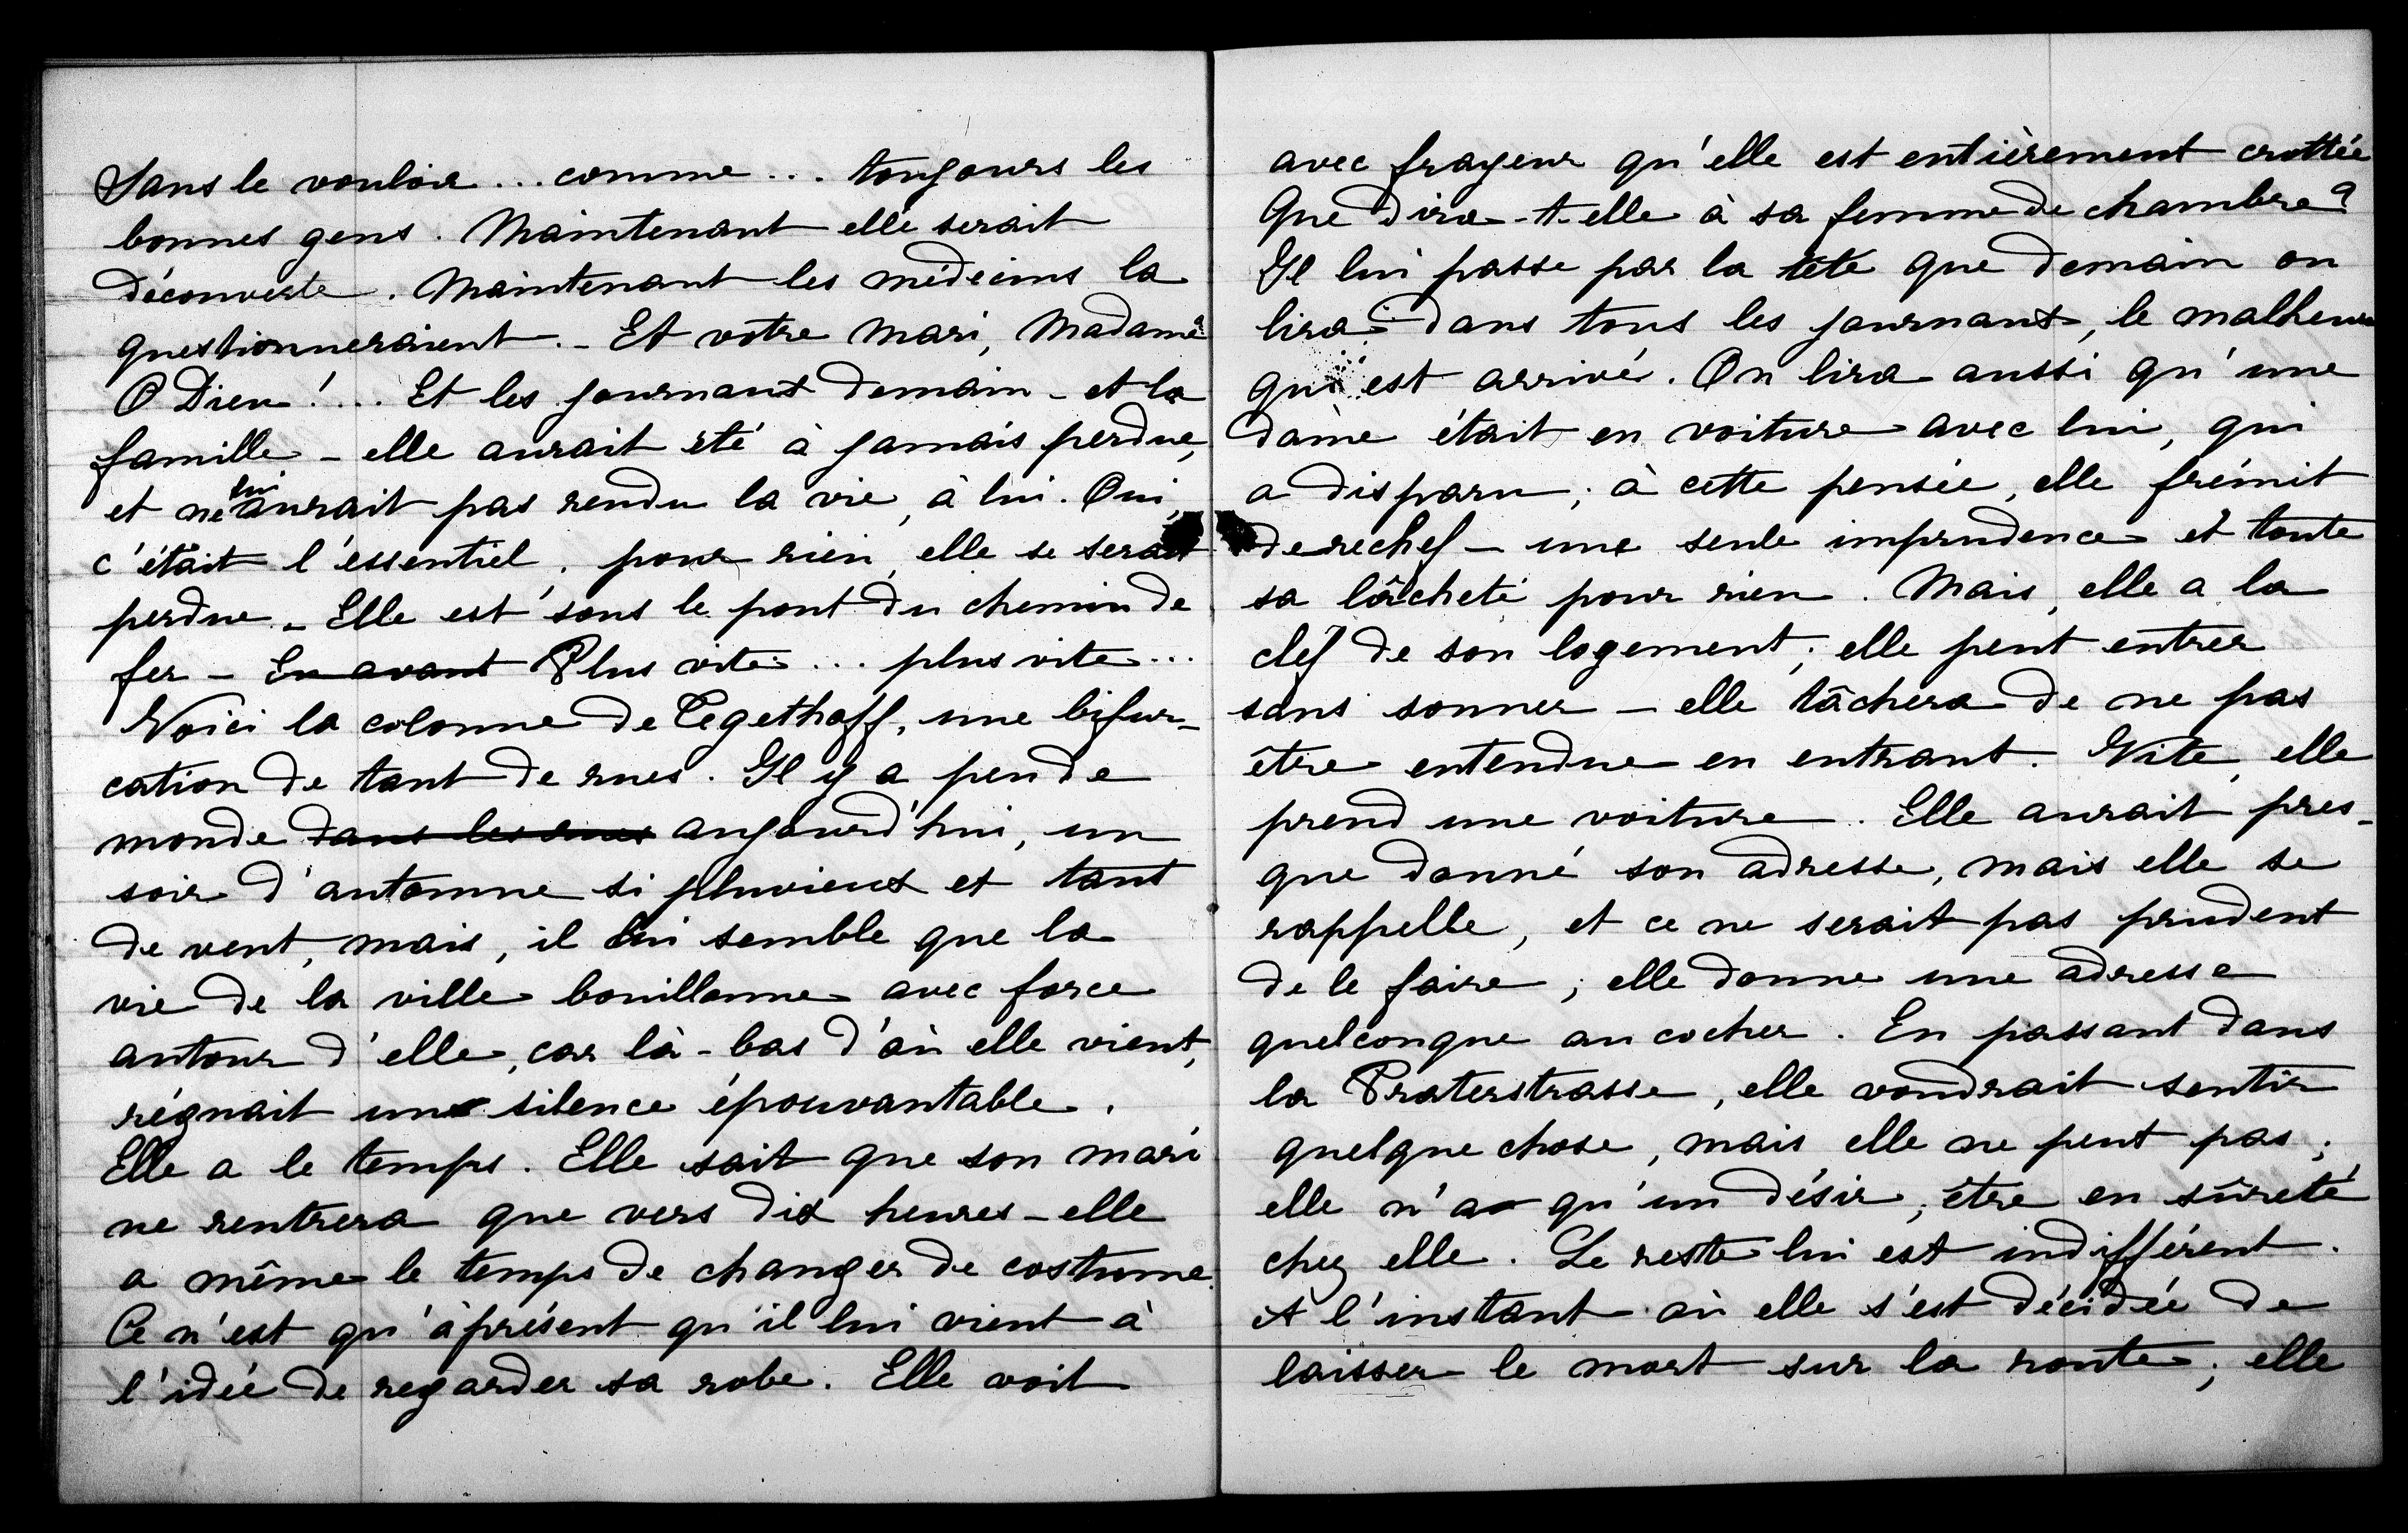 Sans le vouloir... comme... toujours les
bonnes gens. Maintenant elle serait
découverte. Maintenant les médecins la
questionneraient. - Et votre mari, Madame
O Dieu!... Et les journaux demain - et la
famille - elle aurait été à jamais perdue,
et ne lui aurait pas rendu la vie, à lui. Oui,
c'était l'essentiel, pour rien, elle se serait
perdue. - Elle est sous le pont du chemin de
fer - En avant Plus vite... plus vite...
Voici la colonne de Tegethoff, une bifur-
cation de tant de rues. Il y a peu de
monde dans les rues aujourd'hui, un
soir d'automne si pluvieux et tant
de vent, mais, il lui semble que la
vie de la ville bouillonne avec force
autour d'elle, car là-bas d'où elle vient,
régnait un silence épouvantable.
Elle a le temps. Elle sait que son mari
ne rentrera que vers dix heures - elle
a même le temps de changer de costume.
Ce n'est qu'àprésent qu'il lui vient à
l'idée de regarder sa robe. Elle voit
avec frayeur qu'elle est entièrement crottée
Que dira-t-elle à sa femme de chambre?
Il lui passe par la tête que demain on
lira dans tous les journaux, le malheur
qui est arrivé. On lira aussi qu'une
dame était en voiture avec lui, qui
a disparu; à cette pensée, elle frémit
derechef - une seule imprudence et toute
sa lâcheté pour rien. Mais, elle a la
clef de son logement; elle peut entrer
sans sonner - elle tâchera de ne pas
être entendue en entrant. Vite, elle
prend une voiture. Elle aurait pres-
que donné son adresse, mais elle se
rappelle, et ce ne serait pas prudent
de le faire; elle donne une adresse
quelconque au cocher. En passant dans
la Praterstrasse, elle voudrait sentir
quelque chose, mais elle ne peut pas;
elle n'a qu'un désir, être en sûreté
chez elle. Le reste lui est indifférent.
A l'instant où elle s'est décidée de
laisser le mort sur la route; elle